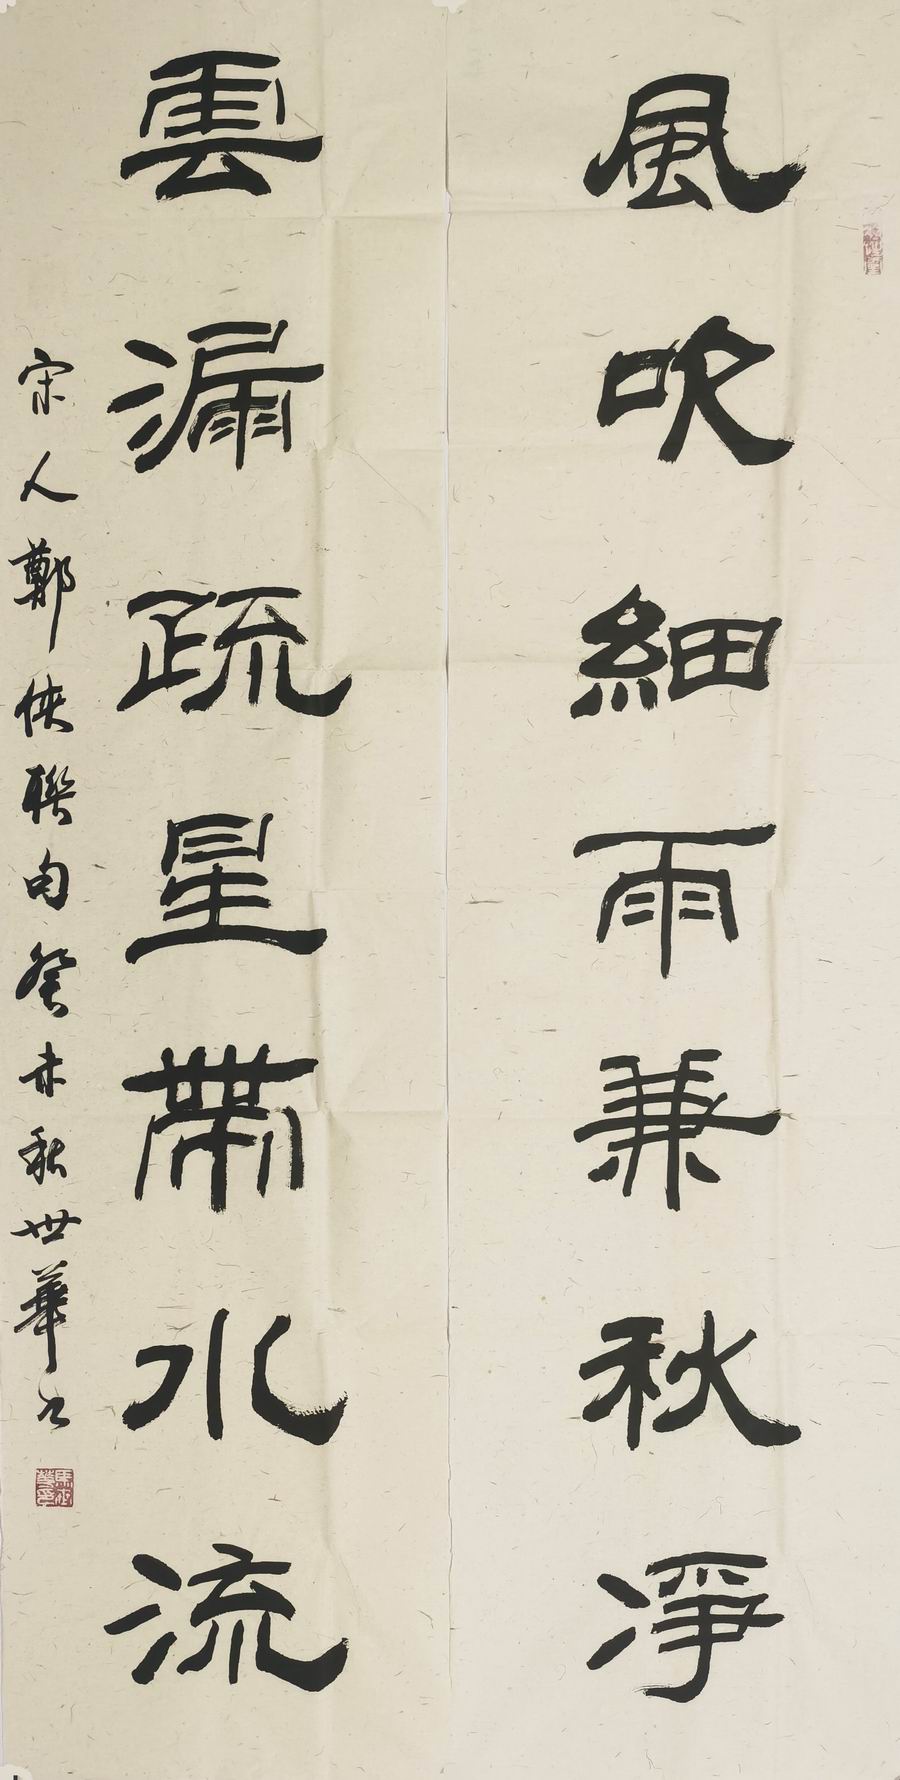 風吹細雨兼秋淨
雲漏疏星帶水流
宋人鄭俠聯句癸未秋世華書